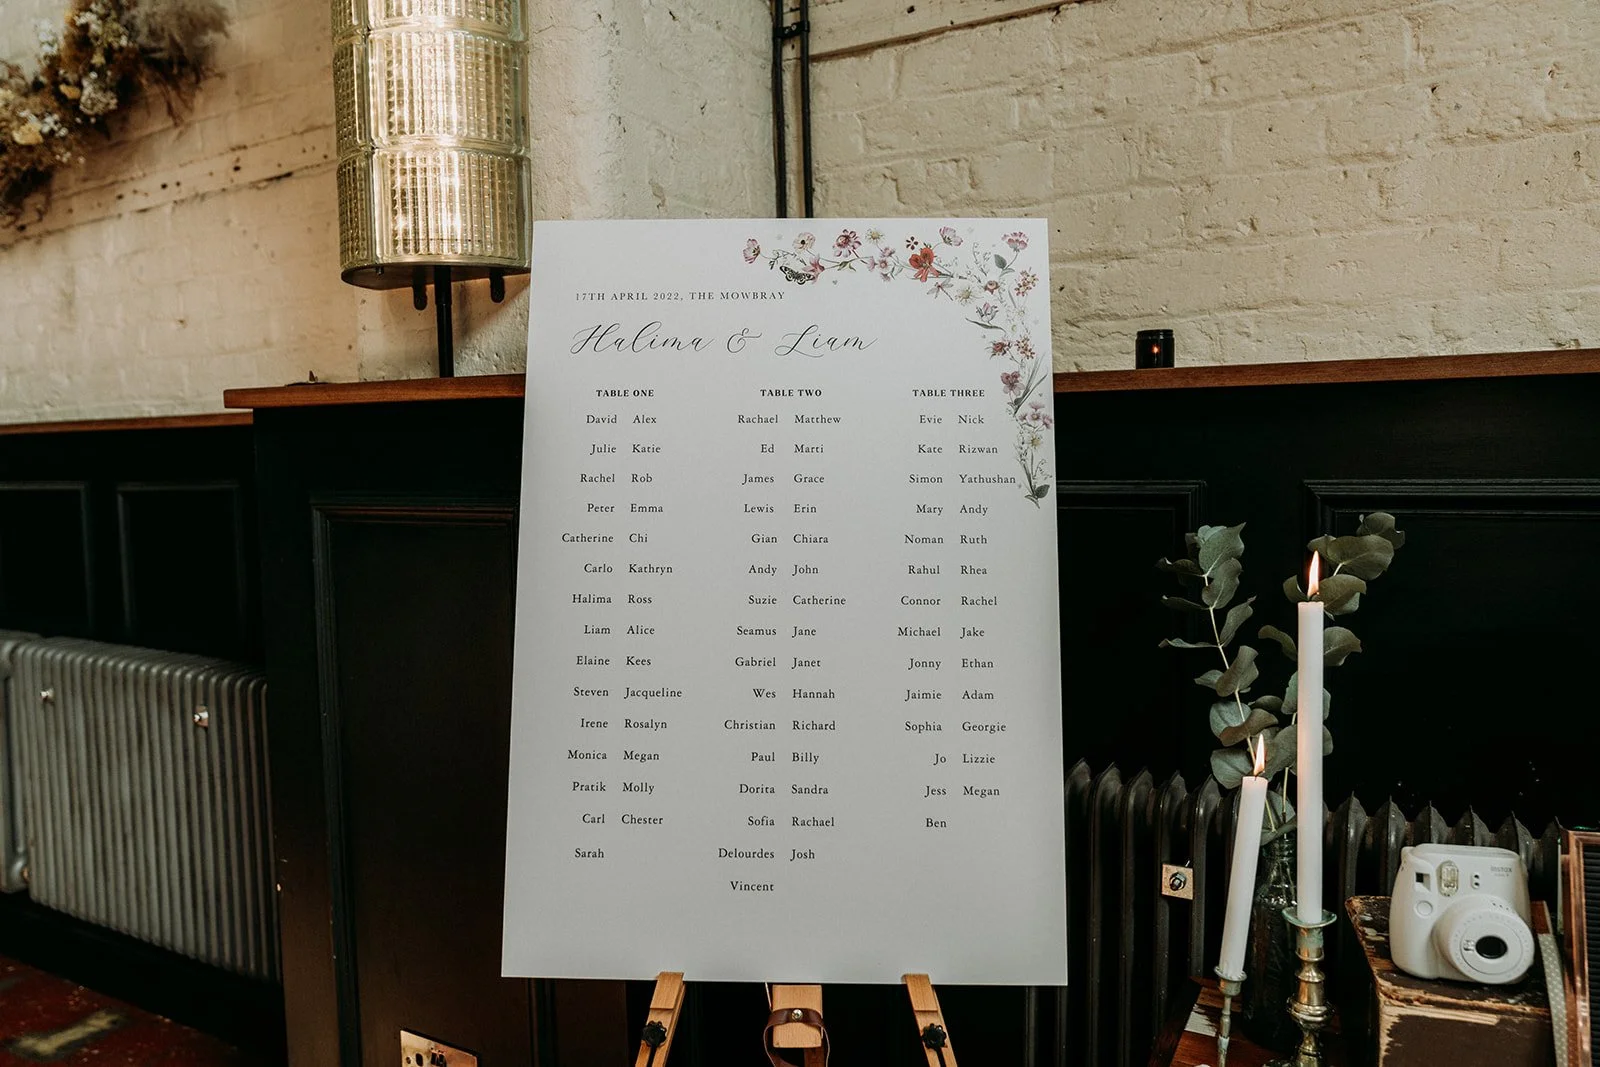 17TH APRIL 2022, THE MOWBRAY
Halima & Liam
TABLE ONE
David Alex
Julie Katie
Rachel Rob
Peter Emma
Catherine Chi
Carlo Kathryn
Halima Ross
Liam Alice
Elaine Kees
Steven Jacqueline
Irene Rosalyn
Monica Megan
Pratik Molly
Carl Chester
Sarah
TABLE TWO
Rachael Matthew
Ed Marti
James Grace
Lewis Erin
Gian Chiara
Andy John
Suzie Catherine
Seamus Jane
Gabriel Janet
Wes Hannah
Christian Richard
Paul Billy
Dorita Sandra
Sofia Rachael
Delourdes Josh
Vincent
TABLE THREE
Evie Nick
Kate Rizwan
Simon Yathushan
Mary Andy
Noman Ruth
Rahul Rhea
Connor Rachel
Michael Jake
Jonny Ethan
Jaimie Adam
Sophia Georgie
Jo Lizzie
Jess Megan
Ben